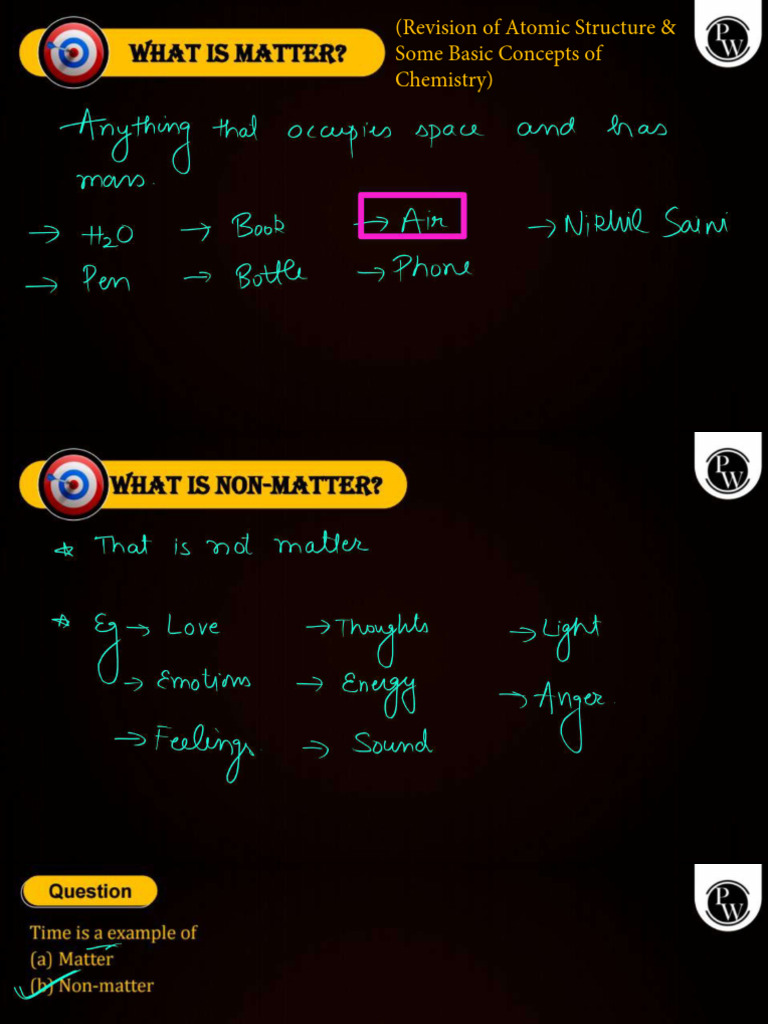 WHAT IS MATTER?
(Revision of Atomic Structure &
Some Basic Concepts of
Chemistry)
PW
Anything that occupies space and has
mass.
→ H₂O → Book → Air → Nikhil Saini
→ Pen → Bottle → Phone
WHAT IS NON-MATTER?
PW
* That is not matter
* Eg → Love → Thoughts → Light
→ Emotions → Energy → Anger
→ Feelings → Sound
Question
PW
Time is a example of
(a) Matter
(b) Non-matter